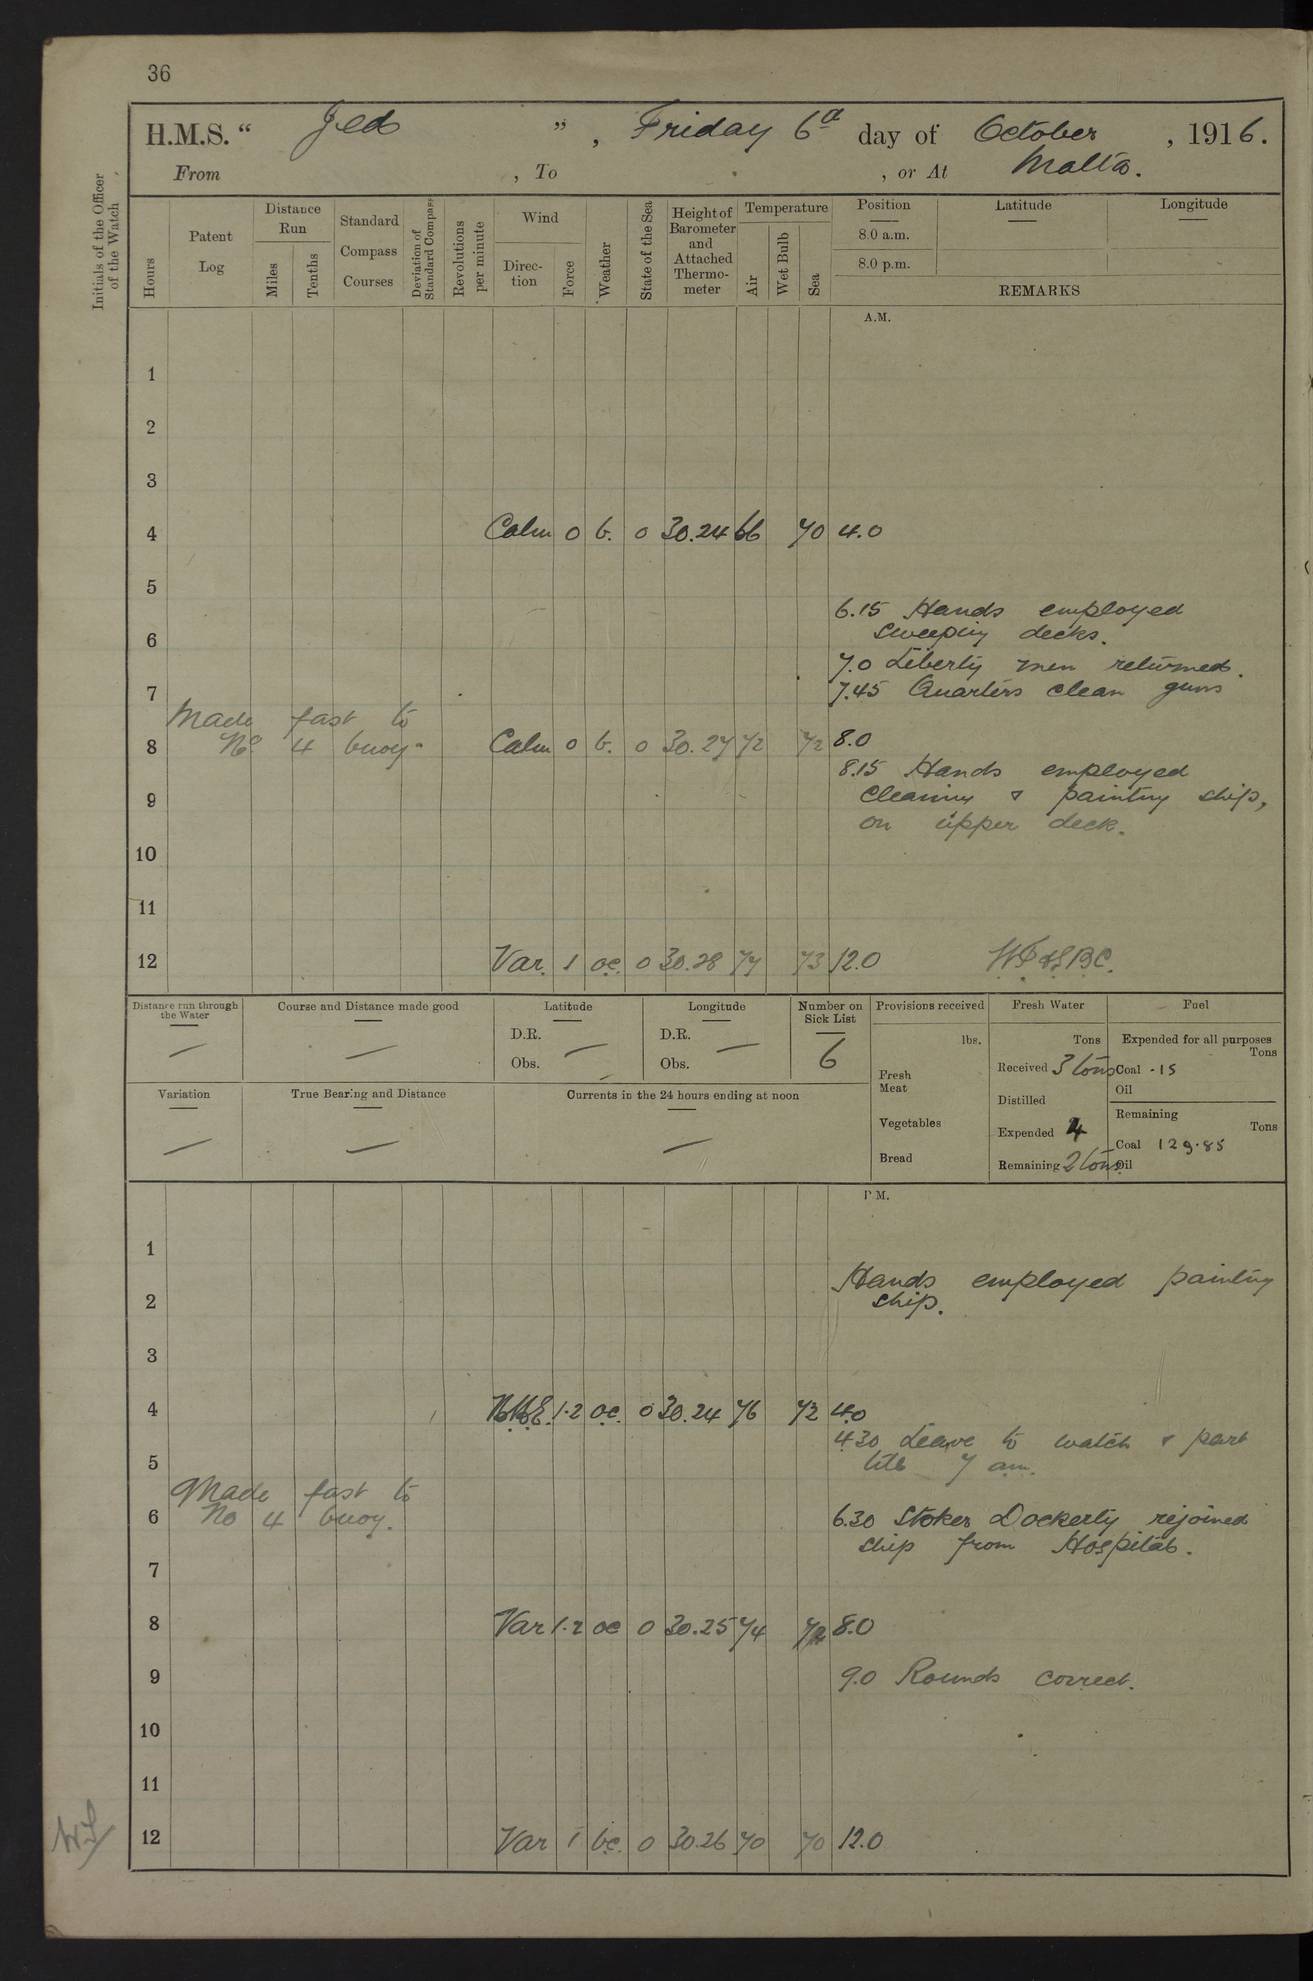 36
H.M.S. “ Jed ” , Friday 6th day of October , 1916.
From , To , or At Malta.
Initials of the Officer of the Watch
Hours
Patent Log
Distance Run
Miles
Tenths
Standard Compass Courses
Deviation of Standard Compass
Revolutions per minute
Wind
Direction
Force
Weather
State of the Sea
Height of Barometer and Attached Thermometer
Temperature
Air
Wet Bulb
Sea
Position
Latitude
Longitude
8.0 a.m.
8.0 p.m.
REMARKS
A.M.
1
2
3
4 Calm 0 b. 0 30.24 66 70 4.0
5
6.15 Hands employed
6 sweeping decks.
7.0 Liberty men returned.
7 7.45 Quarters clean guns
Made fast to
8 No 4 buoy. Calm 0 b. 0 30.27 72 72 8.0
8.15 Hands employed
9 cleaning & painting ship,
on upper deck.
10
11
12 Var. 1 oc. 0 30.28 77 73 12.0
Distance run through the Water
Course and Distance made good
Latitude
D.R.
Obs.
Longitude
D.R.
Obs.
Number on Sick List
6
Provisions received
lbs.
Fresh Meat
Vegetables
Bread
Fresh Water
Tons
Received 3 tons
Distilled
Expended 4
Remaining 2 tons
Fuel
Expended for all purposes
Tons
Coal .15
Oil
Remaining
Tons
Coal 129.85
Oil
Variation
True Bearing and Distance
Currents in the 24 hours ending at noon
P.M.
1
Hands employed painting
2 ship.
3
4 1.2 oc. 0 30.24 76 72 4.0
4.30 Leave to watch & part
5 till 7 am.
Made fast to
6 No 4 buoy. 6.30 Stoker Dockerty rejoined
ship from Hospital.
7
8 Var 1.2 oc 0 30.25 74 72 8.0
9 9.0 Rounds correct.
10
11
12 Var 1 bc. 0 30.26 70 70 12.0